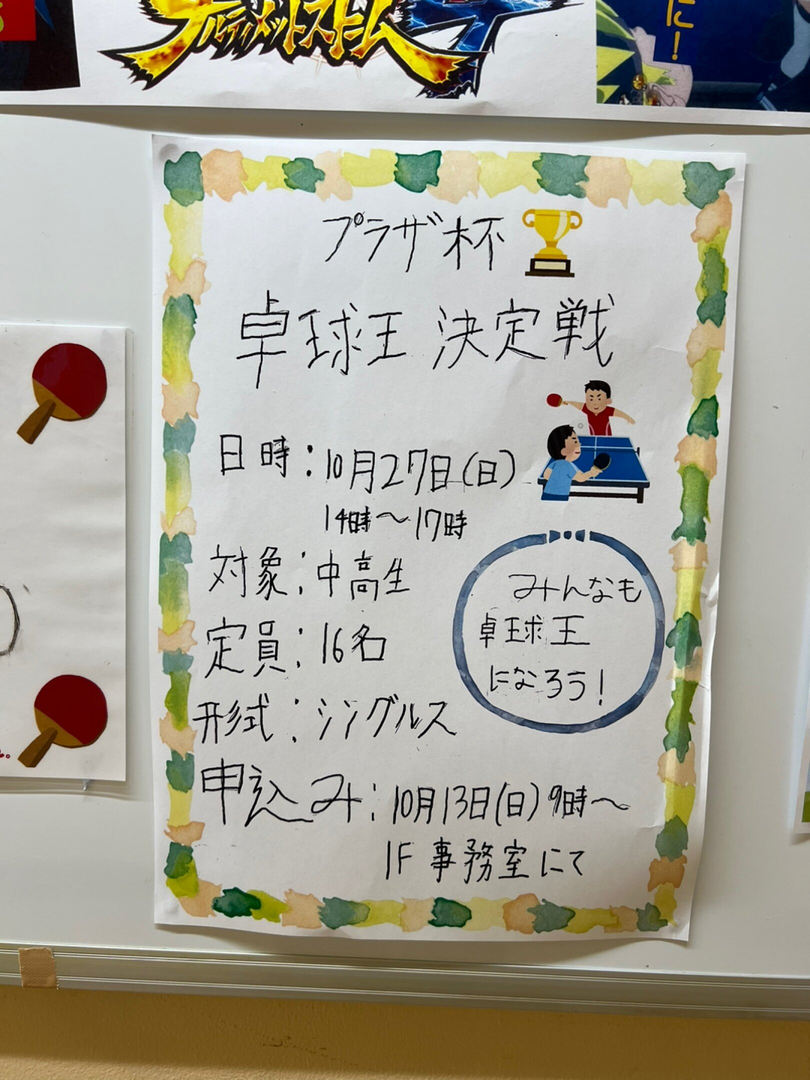 ナルティメットストーム4
に!
プラザ杯
卓球王 決定戦
日時:10月27日(日)
14時〜17時
対象:中高生
定員:16名
形式:シングルス
申込み:10月13日(日)9時〜
1F 事務室にて
みんなも
卓球王
になろう!